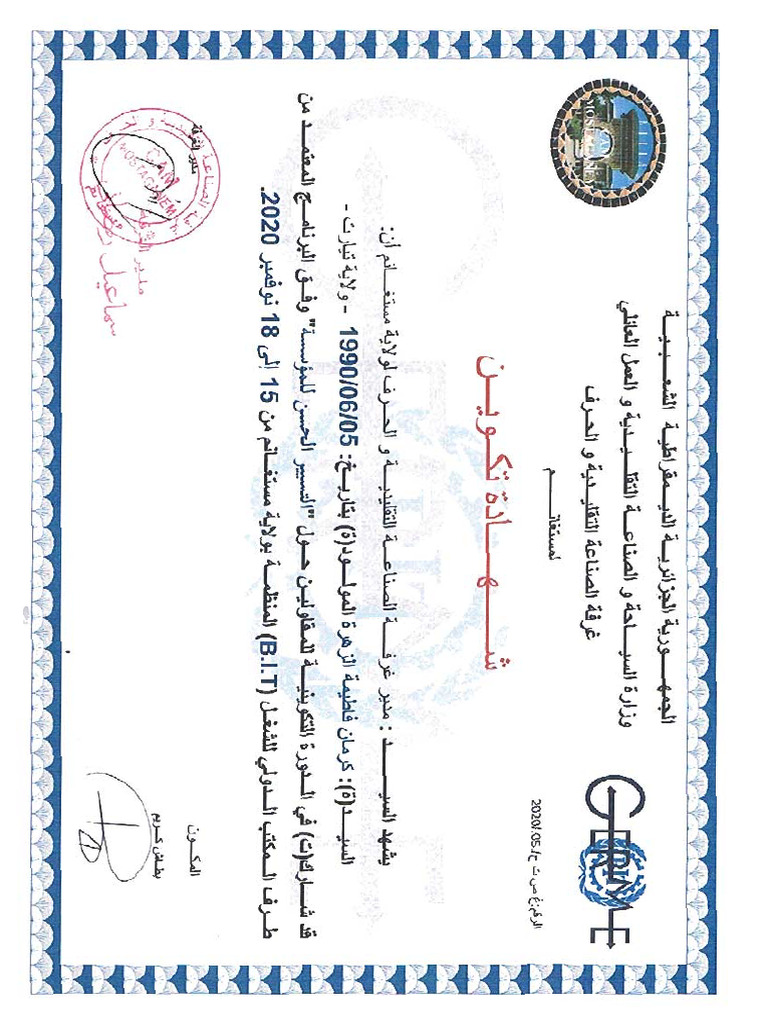 الجمهورية الجزائرية الديمقراطية الشعبية
وزارة السياحة و الصناعة التقليدية و العمل العائلي
غرفة الصناعة التقليدية و الحرف
لمستغانم
MOSTAGANEM
CERME
الرقم:غ ص ت ح/05./2020
شهادة تكوين
يشهد السيد : مدير غرفة الصناعة التقليدية و الحرف لولاية مستغانم أن:
السيد(ة): كرمان فاطيمة الزهرة المولود(ة) بتاريخ: 1990/06/05 - ولاية تيارت -
قد شارك(ت) في الدورة التكوينية للمقاولين حول "التسيير الحسن للمؤسسة" وفق البرنامج المعتمد من
طرف المكتب الدولي للشغل (B.I.T) المنظمة بولاية مستغانم من 15 إلى 18 نوفمبر 2020.
المكون
بطاش كريم
مدير الغرفة
CAM
MOSTAGANEM
مستغانم